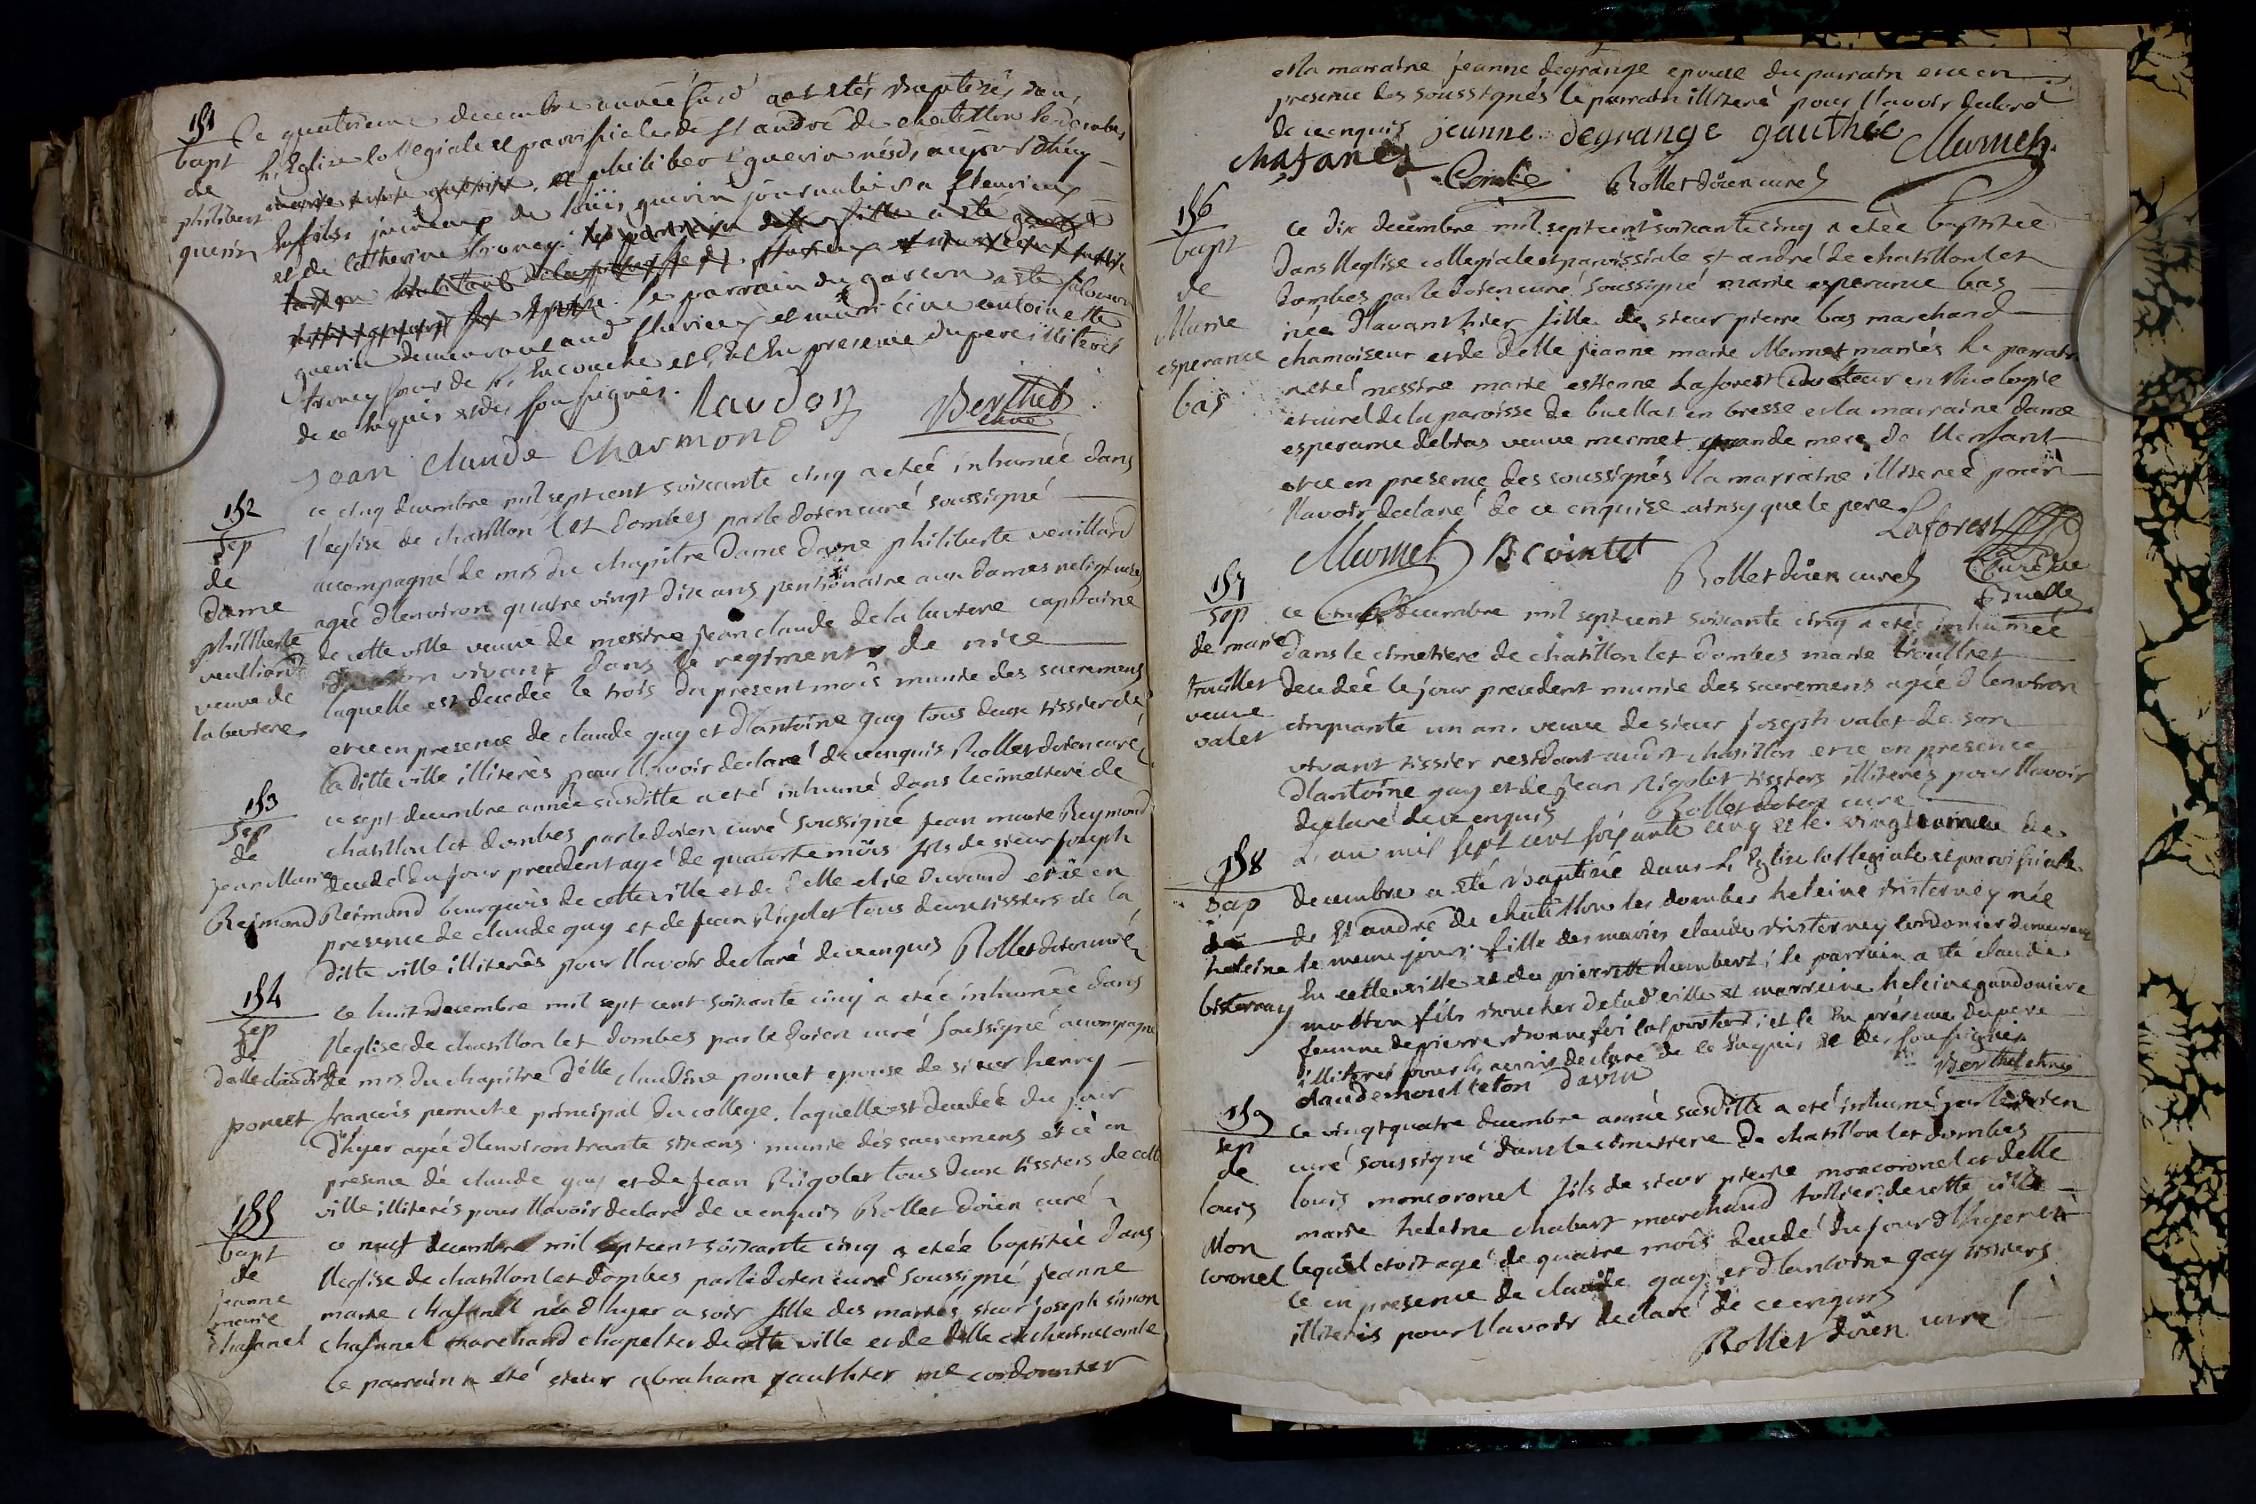 151
bapt
de
philibert
guerin
Le quatrieme decembre année susd a été baptisé, dans
L'Eglise collegiale et paroissiale de St andré de chatillon les dombes
philibert guerin né d'aujourd'huy
fils jumeaux de loüis guerin journalier a fleurieux
et de Catherine troney
le parrain du garcon a été
guerin demeurant aud fleurieux et marreine antoinette
troney sœur de l'accouchée et ce En presence du pere illiterés
de ce Enquis et des soussignés. Raudoz
Jean Claude Charmond Berthet
vicaire
152
sep
de
dame
philiberte
veuillard
veuve de
la buviere
ce cinq decembre mil sept cent soixante cinq a eteé inhumée dans
l'eglise de chatillon les dombes par le doien curé soussigné
acompagné de mrs du chapitre dame philiberte veuillard
ageé d'environ quatre vingt dix ans pensionaire aux dames religieuses
de cette ville veuve de messire jean claude de la buviere capitaine
de son vivant dans le regiment de nice
laquelle est decedée le trois du present mois munie des sacremens
et ce en presence de claude gay et d'antoine gay tous deux tissier de
la ditte ville illiterés pour l'avoir declaré de ce enquis Rollet doien curé
153
sep
de
jean Marie
Reimond
ce sept decembre année susditte a eté inhumé dans le cimetiere de
chatillon les dombes par le doien curé soussigné jean marie Reymond
decedé du jour precedent agé de quatorse mois fils de sieur joseph
Reimond bourgeois de cette ville et de delle elie durand et ce en
presence de claude gay et de jean Rigolet tous deux tissiers de la
ditte ville illiterés pour l'avoir declaré de ce enquis Rollet doien curé
154
sep
de
delle claudine
poncet
ce huit decembre mil sept cent soixante cinq a eteé inhumée dans
l'eglise de chatillon les dombes par le doien curé soussigné acompagné
de mrs du chapitre d'elle claudine poncet epouse de sieur henry
francois perruche principal du college. laquelle est decedeé du jour
d'hyer ageé d'environ trante six ans munie des sacremens et ce en
presence de claude gay et de jean Rigolet tous deux tissiers de cette
ville illiterés pour l'avoir declaré de ce enquis Rollet doien curé
155
bapt
de
jeanne
marie
chafanel
ce neuf decembre mil sept cent soixante cinq a eteé baptiseé dans
l'eglise de chatillon les dombes par le doien curé soussigné jeanne
marie chafanel née d'hyer a soir fille des mariés sieur joseph simon
chafanel marchand chapelier de cette ville et de delle
le parrain a eté sieur abraham gauthier me cordonnier
et la marraine jeanne degrange epouse du parrain et ce en
presence des soussignés le parrain illiteré pour l'avoir declaré
de ce enquis jeanne degrange gauthié Mermet
chafanel Comte Rollet doien curé
156
bapt
de
Marie
esperance
bas
ce dix decembre mil sept cent soixante cinq a eteé baptiseé
dans l'eglise collegiale et paroissiale st andré de chatillon les
dombes par le doien curé soussigné marie esperance bas
née d'avant hier fille de sieur pierre bas marchand
chamoiseur et de delle jeanne marie Mermet mariés le parrain
a eté messire marie estienne Laforest docteur en theologie
et curé de la paroisse de buellas en bresse et la marraine dame
esperance debias veuve mermet grande mere de l'enfant
et ce en presence des soussignés la marraine illitereé pour
l'avoir declaré de ce enquise ainsy que le pere. Laforest
Mermet B cointet Rollet doien curé curé de
Buellas
157
sep
de marie
trouillet
veuve
valet
ce decembre mil sept cent soixante cinq a eteé inhumée
dans le cimetiere de chatillon les dombes marie trouillet
decedeé le jour precedent munie des sacremens ageé d'environ
cinquante un an. veuve de sieur joseph valet de son
vivant tissier residant audit chatillon et ce en presence
d'antoine gay et de jean Rigolet tissiers illiterés pour l'avoir
declaré de ce enquis Rollet doien curé
158
bap
de
heleine
bisternay
L'an mil sept cent soixante cinq et le vingtieme de
decembre a été baptisée dans L'Eglise collegiale et paroissiale
de St andré de chatillon les dombes heleine bisterney née
le meme jour; fille des mariés claude bisterney cordonier demeurant
En cette ville et de pierrette humbert; le parrain a été claude
fils boucher de lad ville et marreine heleine gandoniere
femme de pierre ; et ce En présence du pere
illiterés pour l'avoir declaré de ce Enquis et des soussignés
claude davin Berthet vicaire
159
sep
de
louis
Mon
coronel
ce vingt quatre decembre année susditte a eté inhumé par le doien
curé soussigné dans le cimetiere de chatillon les dombes
louis moncoronel fils de sieur pierre moncoronel et delle
marie heleine chabert marchand tollier de cette ville
lequel etoit agé de quatre mois decedé du jour d'hyer et
ce en presence de claude gay et d'antoine gay tissiers
illiterés pour l'avoir declaré de ce enquis
Rollet doien curé